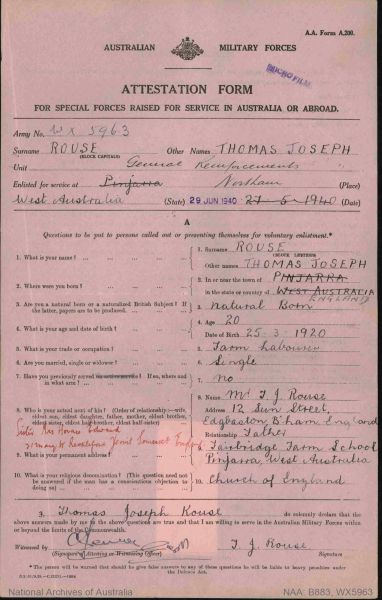 A.A. Form A.200.
AUSTRALIAN MILITARY FORCES
MICROFILM
ATTESTATION FORM
FOR SPECIAL FORCES RAISED FOR SERVICE IN AUSTRALIA OR ABROAD.
Army No. WX 5963
Surname ROUSE Other Names THOMAS JOSEPH
(BLOCK CAPITALS)
Unit General Reinforcements
Enlisted for service at Pinjarra Northam (Place)
West Australia (State) 29 JUN 1940 27-5-1940 (Date)
A
Questions to be put to persons called out or presenting themselves for voluntary enlistment.*
1. What is your name? 1. Surname ROUSE
(BLOCK LETTERS)
Other names THOMAS JOSEPH
2. Where were you born? 2. In or near the town of PINJARRA
in the state or country of WEST AUSTRALIA
ENGLAND
3. Are you a natural born or a naturalized British Subject? If the latter, papers are to be produced. 3. Natural Born
4. What is your age and date of birth? 4. Age 20
Date of Birth 25-3-1920
5. What is your trade or occupation? 5. Farm Labourer
6. Are you married, single or widower? 6. Single
7. Have you previously served on active service? If so, where and in what arm? 7. no
8. Who is your actual next of kin? (Order of relationship:—wife, eldest son, eldest daughter, father, mother, eldest brother, eldest sister, eldest half-brother, eldest half-sister) 8. Name Mr T. J. Rouse
Address 12 Sun Street,
Edgbaston B'ham England
Relationship Father
Sister
9. What is your permanent address? 9. Fairbridge Farm School
Pinjarra, West Australia
10. What is your religious denomination? (This question need not be answered if the man has a conscientious objection to doing so) 10. Church of England
I, Thomas Joseph Rouse do solemnly declare that the
above answers made by me to the above questions are true and that I am willing to serve in the Australian Military Forces within
or beyond the limits of the Commonwealth.
Witnessed by T. J. Rouse
(Signature of Attesting or Witnessing Officer) Signature
*The person will be warned that should he give false answers to any of these questions he will be liable to heavy penalties under
the Defence Act.
National Archives of Australia NAA: B883, WX5963